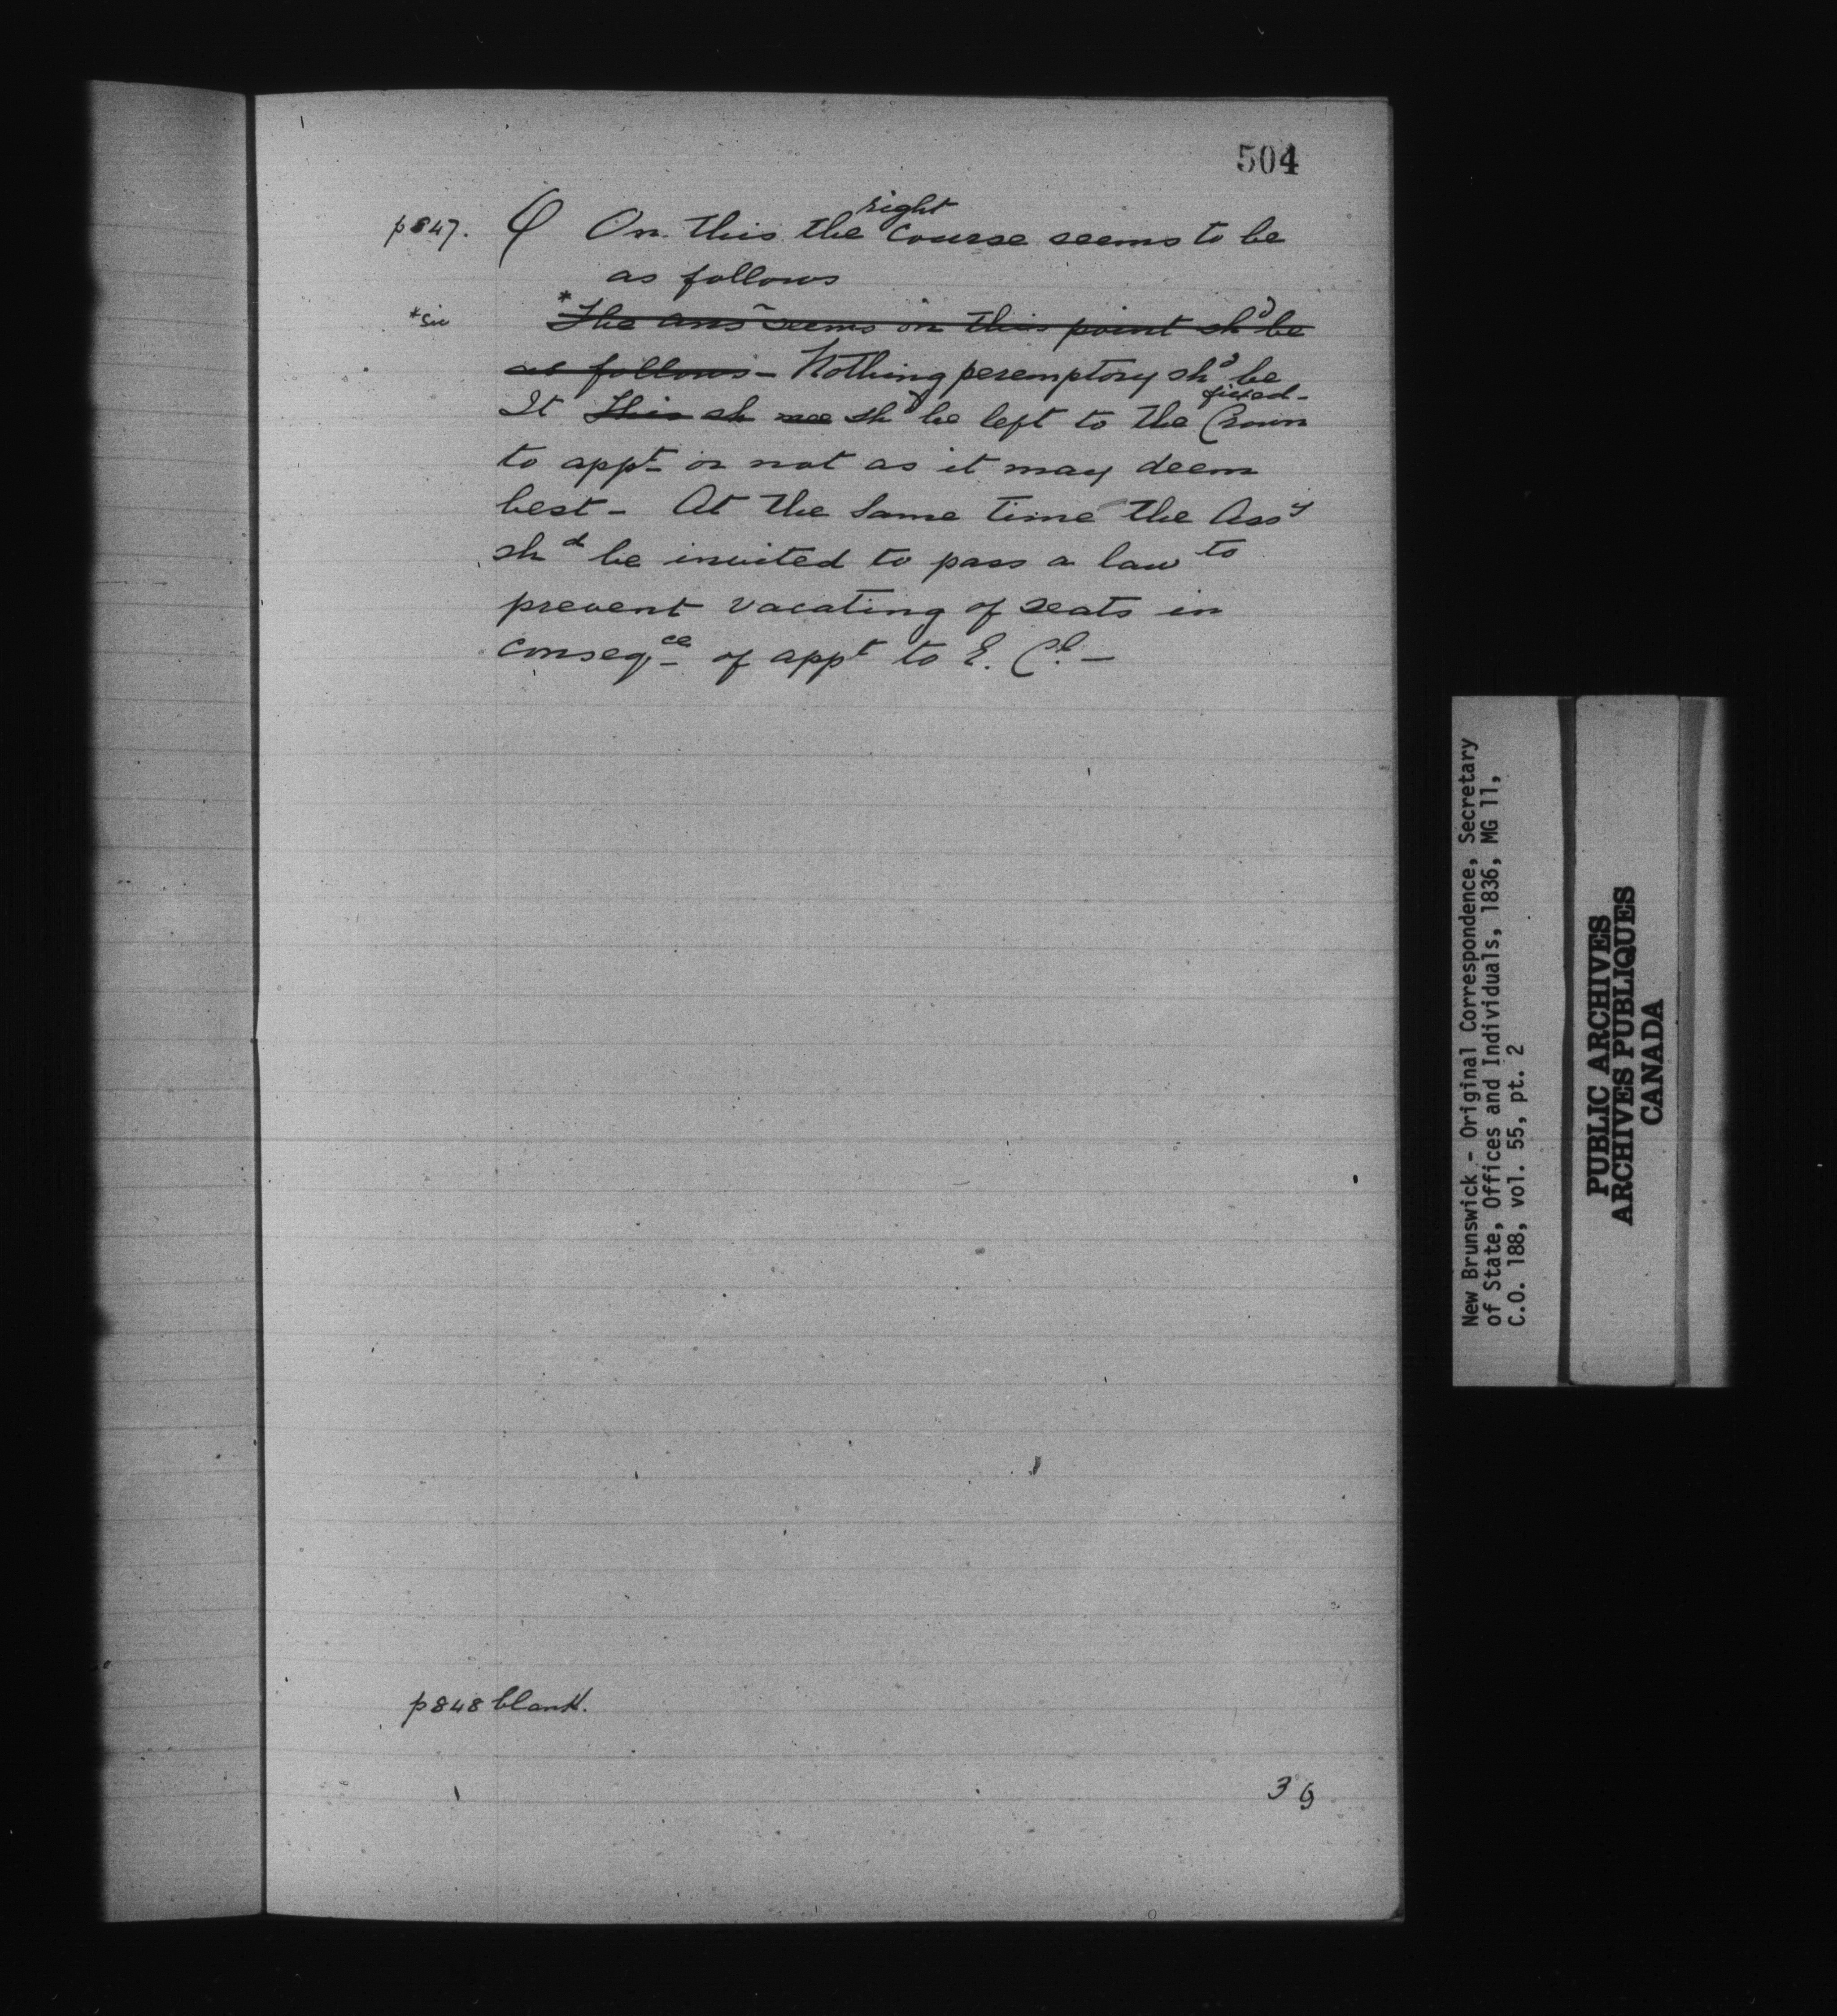 504
p 847. φ On this the right course seems to be
as follows
*sic *The ansr seems on this point shd be
as follows - Nothing peremptory shd be fixed-
It This sh shd be left to the Crown
to appt or not as it may deem
best - At the same time the Assy
shd be invited to pass a law to
prevent vacating of seats in
conseqce of appt to E. Cl. -
p 848 blank.
39
New Brunswick - Original Correspondence, Secretary
of State, Offices and Individuals, 1836, MG 11,
C.O. 188, vol. 55, pt. 2
PUBLIC ARCHIVES
ARCHIVES PUBLIQUES
CANADA